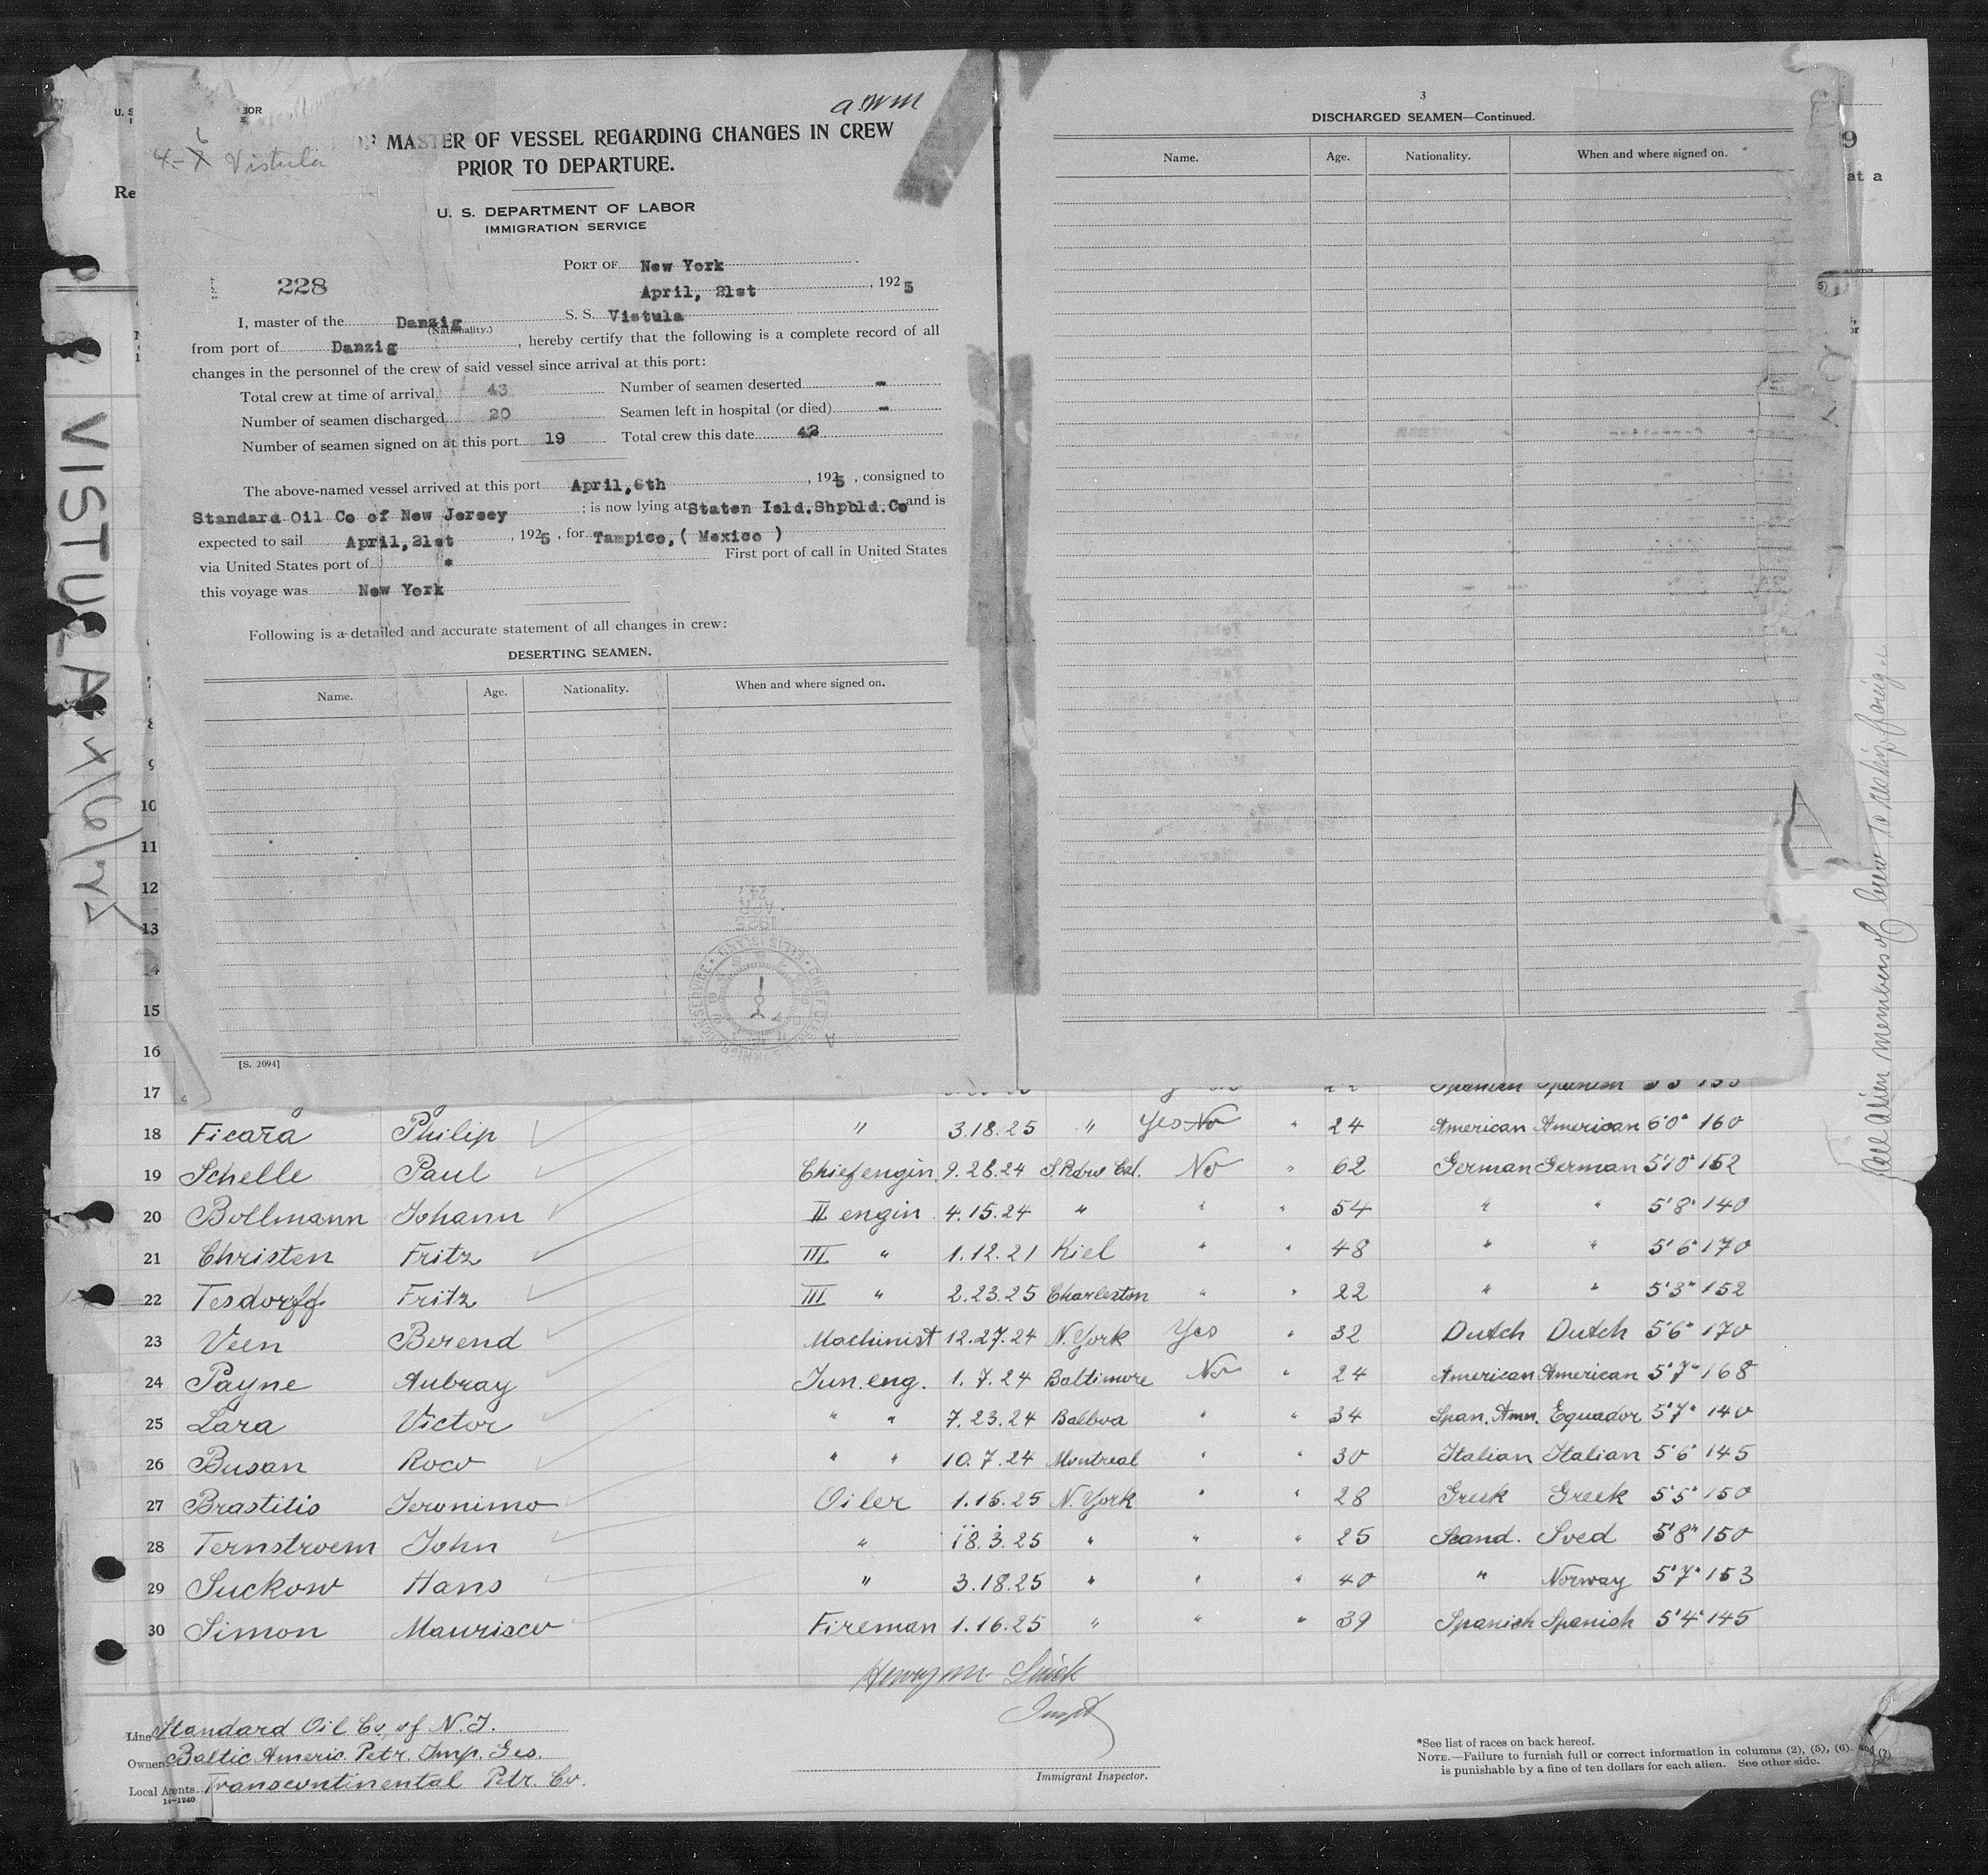 a.WM
MASTER OF VESSEL REGARDING CHANGES IN CREW
PRIOR TO DEPARTURE.
Vistula
U. S. DEPARTMENT OF LABOR
IMMIGRATION SERVICE
228
PORT OF New York
April, 21st, 1925
I, master of the Danzig S. S. Vistula
(Nationality.)
from port of Danzig, hereby certify that the following is a complete record of all
changes in the personnel of the crew of said vessel since arrival at this port:
Total crew at time of arrival 43 Number of seamen deserted -
Number of seamen discharged 20 Seamen left in hospital (or died) -
Number of seamen signed on at this port 19 Total crew this date 42
The above-named vessel arrived at this port April,6th, 1925, consigned to
Standard Oil Co of New Jersey; is now lying at Staten Isld.Shpbld.Co and is
expected to sail April,21st, 1925, for Tampico,( Mexico )
via United States port of * First port of call in United States
this voyage was New York
Following is a detailed and accurate statement of all changes in crew:
DESERTING SEAMEN.
Name. Age. Nationality. When and where signed on.
[S. 2094]
3
DISCHARGED SEAMEN—Continued.
Name. Age. Nationality. When and where signed on.
VISTULA
All alien members of crew to reship foreign
8
9
10
11
12
13
14
15
16
17 Spanish Spanish
18 Ficara Philip " 3.18.25 " Yes No " 24 American American 6'0" 160
19 Schelle Paul Chief engin. 9.28.24 S.Pedro Cal. No " 62 German German 5'10" 152
20 Bollmann Johann II engin. 4.15.24 " " " 54 " " 5'8" 140
21 Christen Fritz III " 1.12.21 Kiel " " 48 " " 5'6" 170
22 Tesdorff Fritz III " 2.23.25 Charleston " " 22 " " 5'3" 152
23 Veen Berend Machinist 12.27.24 N.York Yes " 32 Dutch Dutch 5'6" 170
24 Payne Aubray Jun.eng. 1.7.24 Baltimore No " 24 American American 5'7" 168
25 Lara Victor " " 7.23.24 Balboa " " 34 Span.Amn. Equador 5'7" 140
26 Busan Roco " " 10.7.24 Montreal " " 30 Italian Italian 5'6" 145
27 Brastitis Jeronimo Oiler 1.16.25 N.York " " 28 Greek Greek 5'5" 150
28 Ternstroem John " 18.3.25 " " " 25 Scand. Sved 5'8" 150
29 Suckow Hans " 3.18.25 " " " 40 " Norway 5'7" 153
30 Simon Maurisco Fireman 1.16.25 " " " 39 Spanish Spanish 5'4" 145
Line Standard Oil Co. of N.J.
Owner Baltic Americ. Petr. Imp. Ges.
Local Agents Transcontinental Petr. Co.
14—1240
Immigrant Inspector.
*See list of races on back hereof.
NOTE.—Failure to furnish full or correct information in columns (2), (5), (6), and (7)
is punishable by a fine of ten dollars for each alien. See other side.